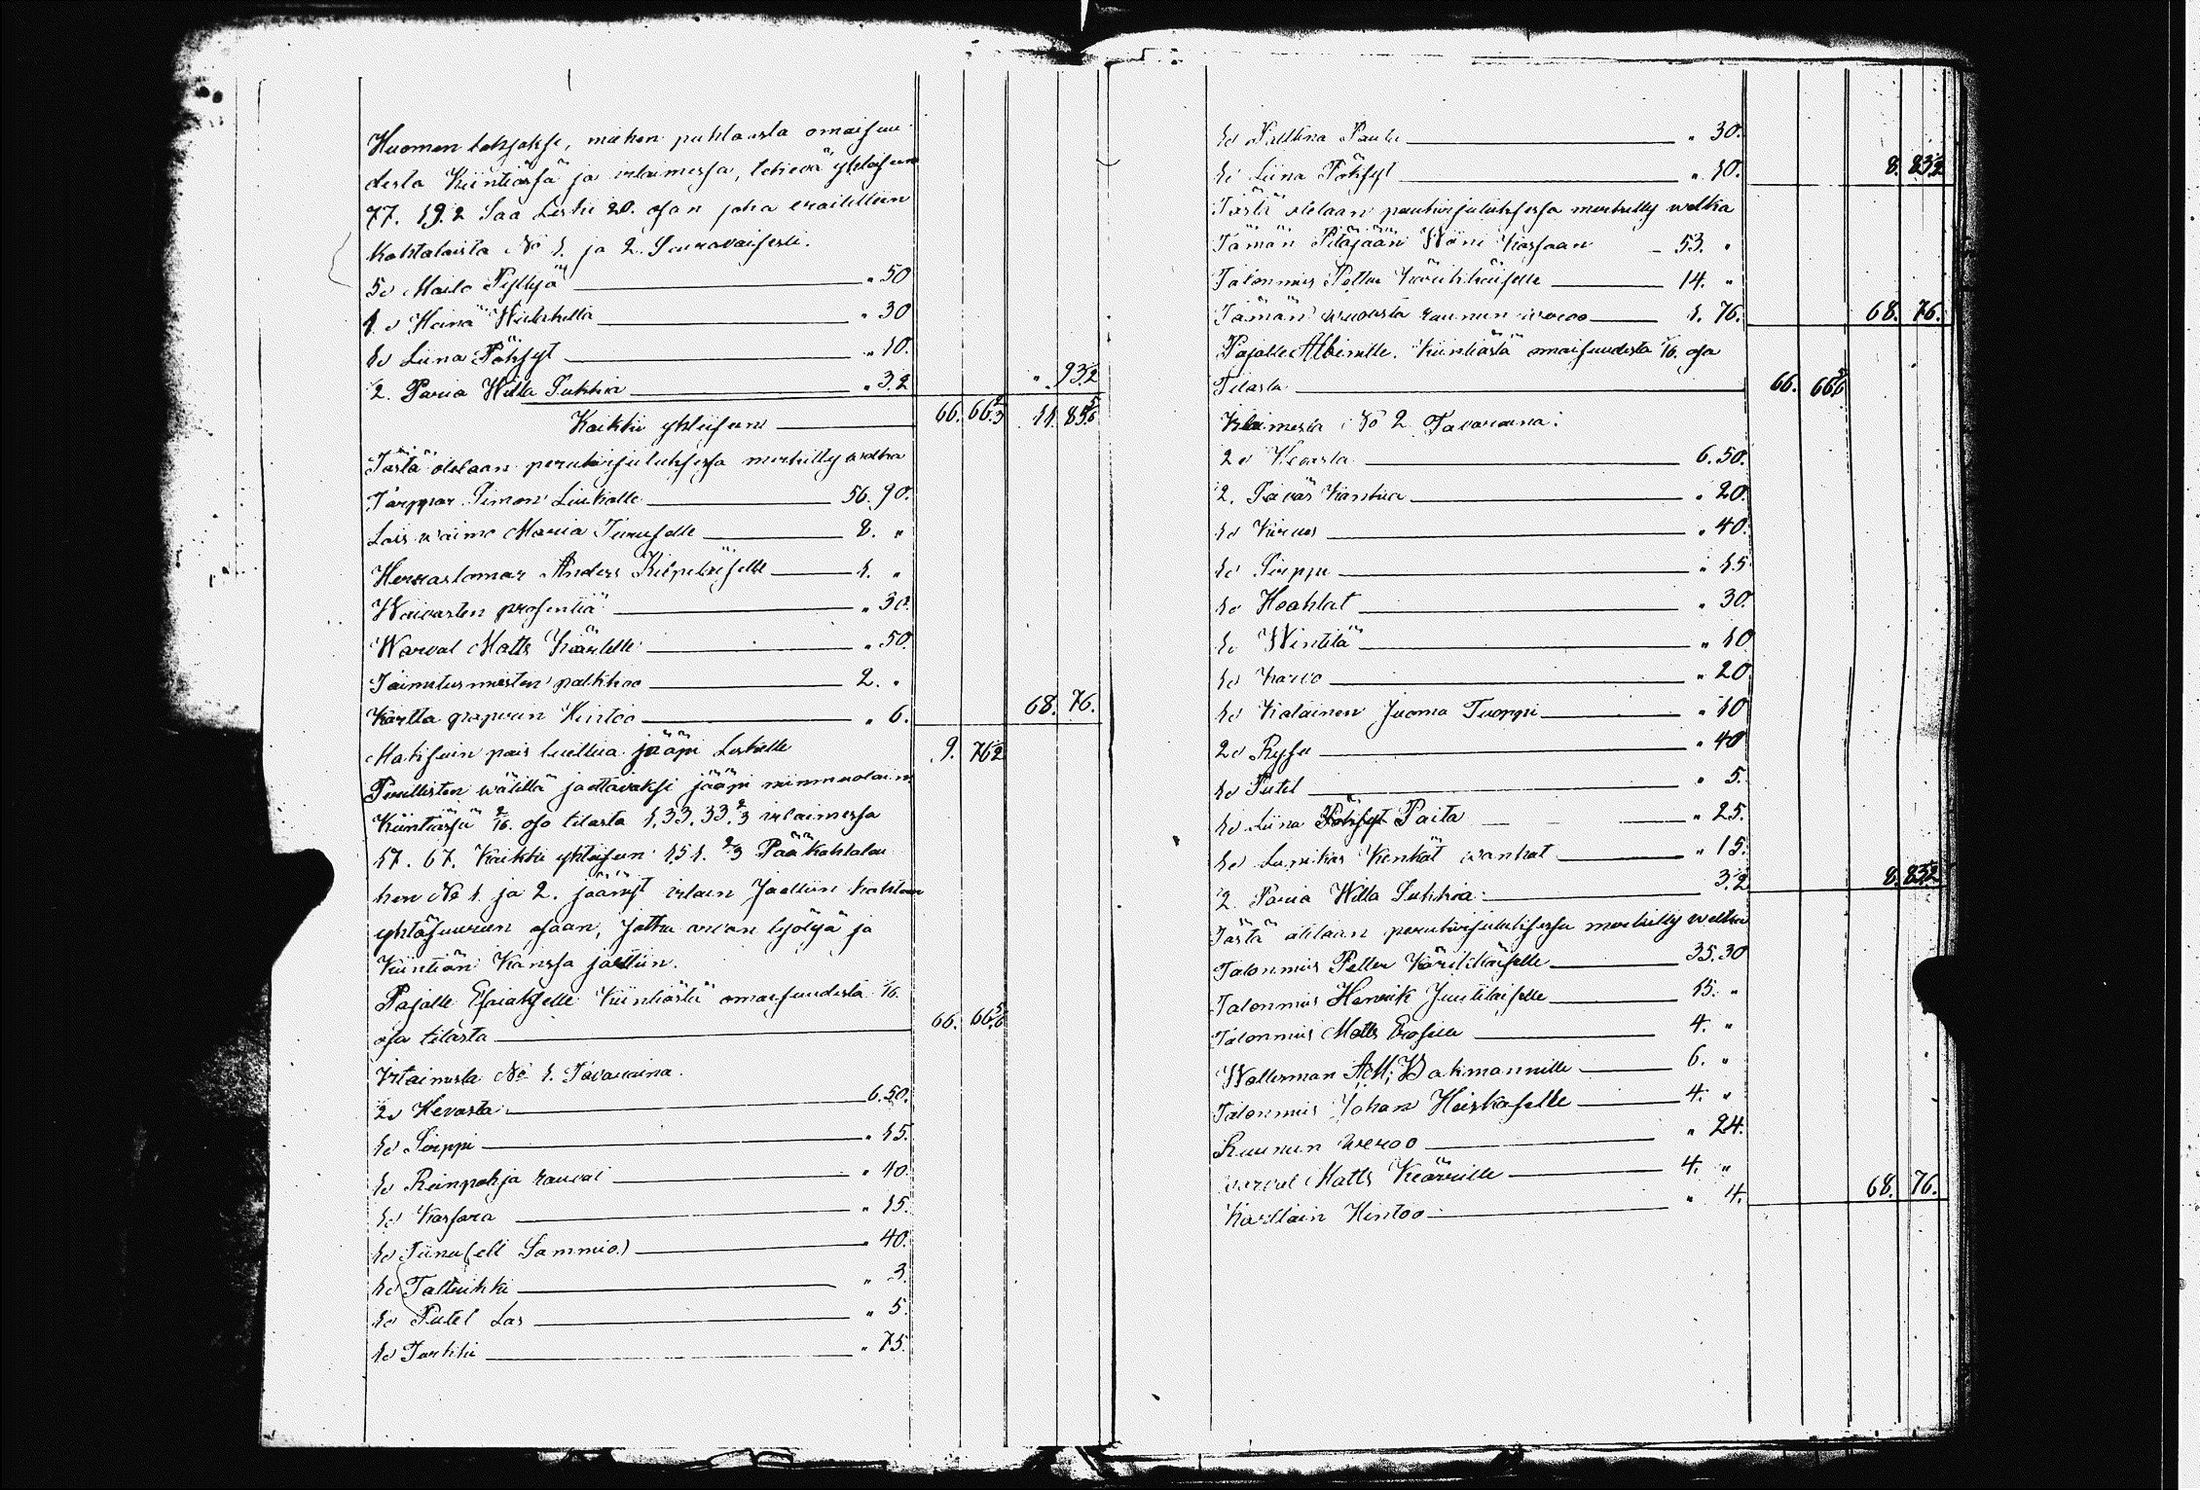 Huomen lahjaksi, miehen puhtaasta omaisuu
desta Kiinteässä ja irtaimessa, tekevä yhteisen
77. 19.2 Saa Leski 20. osan joka
Kohtalaista No 1. ja 2. Seuravaisesti.
5d Maito Pyttyjä " 50
1 d Heinä " 30
1d Liina Pöksyt " 10.
2. Paria Willa Sukkia " 3.2 " 93.2
Kaikki yhteisen 66. 66.2/3 11. 83.5/6
Tästä otetaan perukirjutuksessa merkitty welka
Torppar Simon Liukolle 56. 90.
Lois waimo Maria Turuselle 8. "
Herrastomar Anders Kilpeläiselle 1. "
Waivasten prosentiä " 30.
Warval Matts Kärelle " 50.
Toimitusmiesten palkkaa 2. "
Kartta paperin Hintaa " 6. 68. 76.
Maksuin pois luettua jääpi Leskelle 9. 76.2
Perillisten wälillä jaettavaksi jääpi nimenolaisen
Kiinteässä 2/16. osa tilasta 1,33. 33.2/3 irtaimessa
17. 67. Kaikki yhteisen 151. 2/3 Pää Kohtalai
hen No 1. ja 2. jäänyt irtain Jaettiin kahteen
yhtäsuureen osaan, jotka arvan lyötyä ja
Kiinteän Kanssa jaettiin.
Pojalle Esaiakselle Kiinteästä omaisuudesta 1/16.
osa tilasta 66. 66.5/6
Irtaimesta No 1. Tavaraina.
2d Hevosta 6.50.
1d Sirppi " 15.
1d Reinpohja rauvat " 40.
1d Kassara " 15.
1d Tiinu (eli Sammio) " 40.
1d Taltrikki " 3.
1d Putel Las " 5.
1d Turkki " 75.
1d Palttina Paula " 30.
1d Liina Pöksyt " 10. 8. 83.2
Tästä otetaan perukirjutuksessa merkitty welka
Tämän Pitäjään Wöni Kassaan 53. "
Talonmies Petter Käräkkäiselle 14. "
Tämän wuovesta ruunun weroo 1. 76. 68. 76.
Pojalle Albinille. Kiinteästä omaisuudesta 1/16. osa
Tilasta 66. 66.5/6
Irtaimesta No 2 Tavaraina:
2d Hevosta 6.50.
2. Kantua " 20.
1d Kirves " 40.
1d Sirppi " 15
1d Hoahlat " 30.
1d Wintilä " 10
1d Karvo " 20
1d Kalainen Juoma Tuoppi " 10
2d Rysu " 40
1d Putel " 5.
1d Liina Pöksyt Paita " 25.
1d Lumikas Kenkät wanhat " 15.
2. Paria Willa Sukkia 3.2 8. 83.2
Tästä otetaan perukirjutuksessa merkitty welka
Talonmies Petter Käräkkäiselle 35.30
Talonmies Henrik Juutilaiselle 15. "
Talonmies Matts Erosilla 4. "
Wallesman Ad. M; Wakmannille 6. "
Talonmies Johan Heiskaselle 4. "
Ruunun weroo " 24.
warval Matts Kärelle 4. "
Karttain Hintoo " 4. 68. 76.